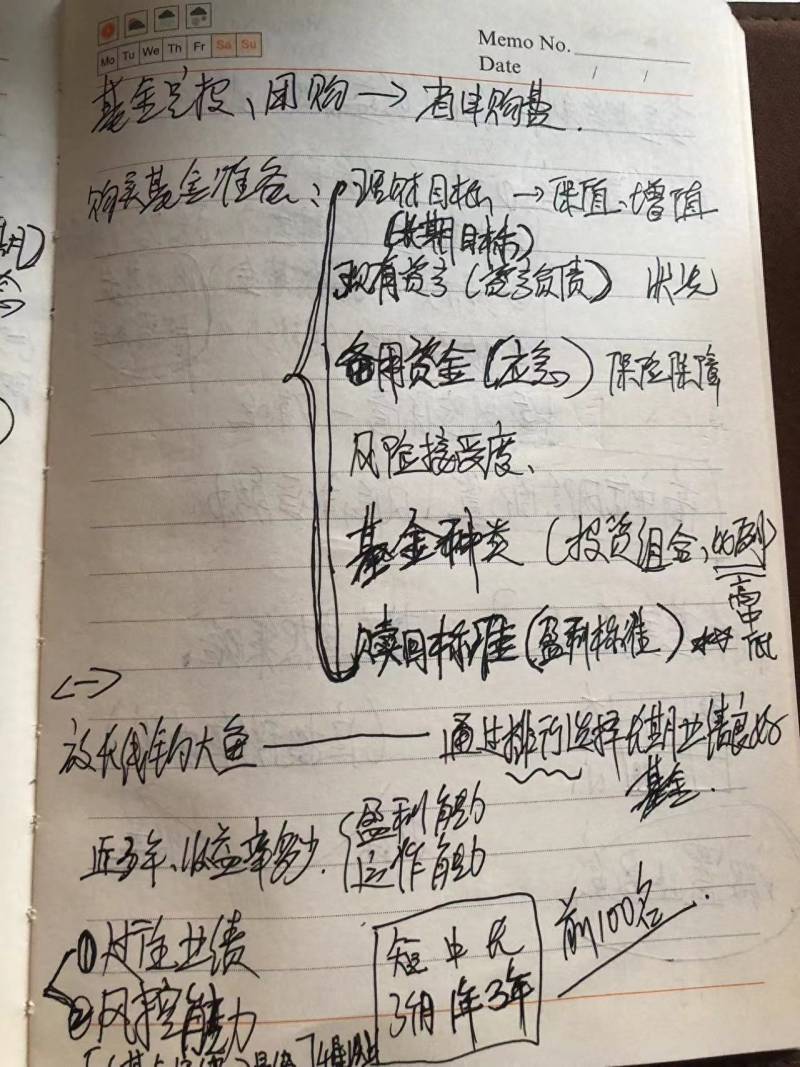 Mo Tu We Th Fr Sa Su
Memo No.
Date / /
基金定投、团购→省申购费.
购买基金准备:
理财目标、→保值、增值
(长期目标)
现有资产(资产负债)状况
备用资金(应急)保险保障
风险接受度、
基金种类(投资组合,比例)
高
中
低
赎回标准(盈利标准)
<一>
放长线钓大鱼——通过排行选择长期业绩良好
基金.
近多年、收益率多少.
盈利能力
运作能力
①对
业绩
②风控能力
短 中 长
3月 1年 3年
前100名.